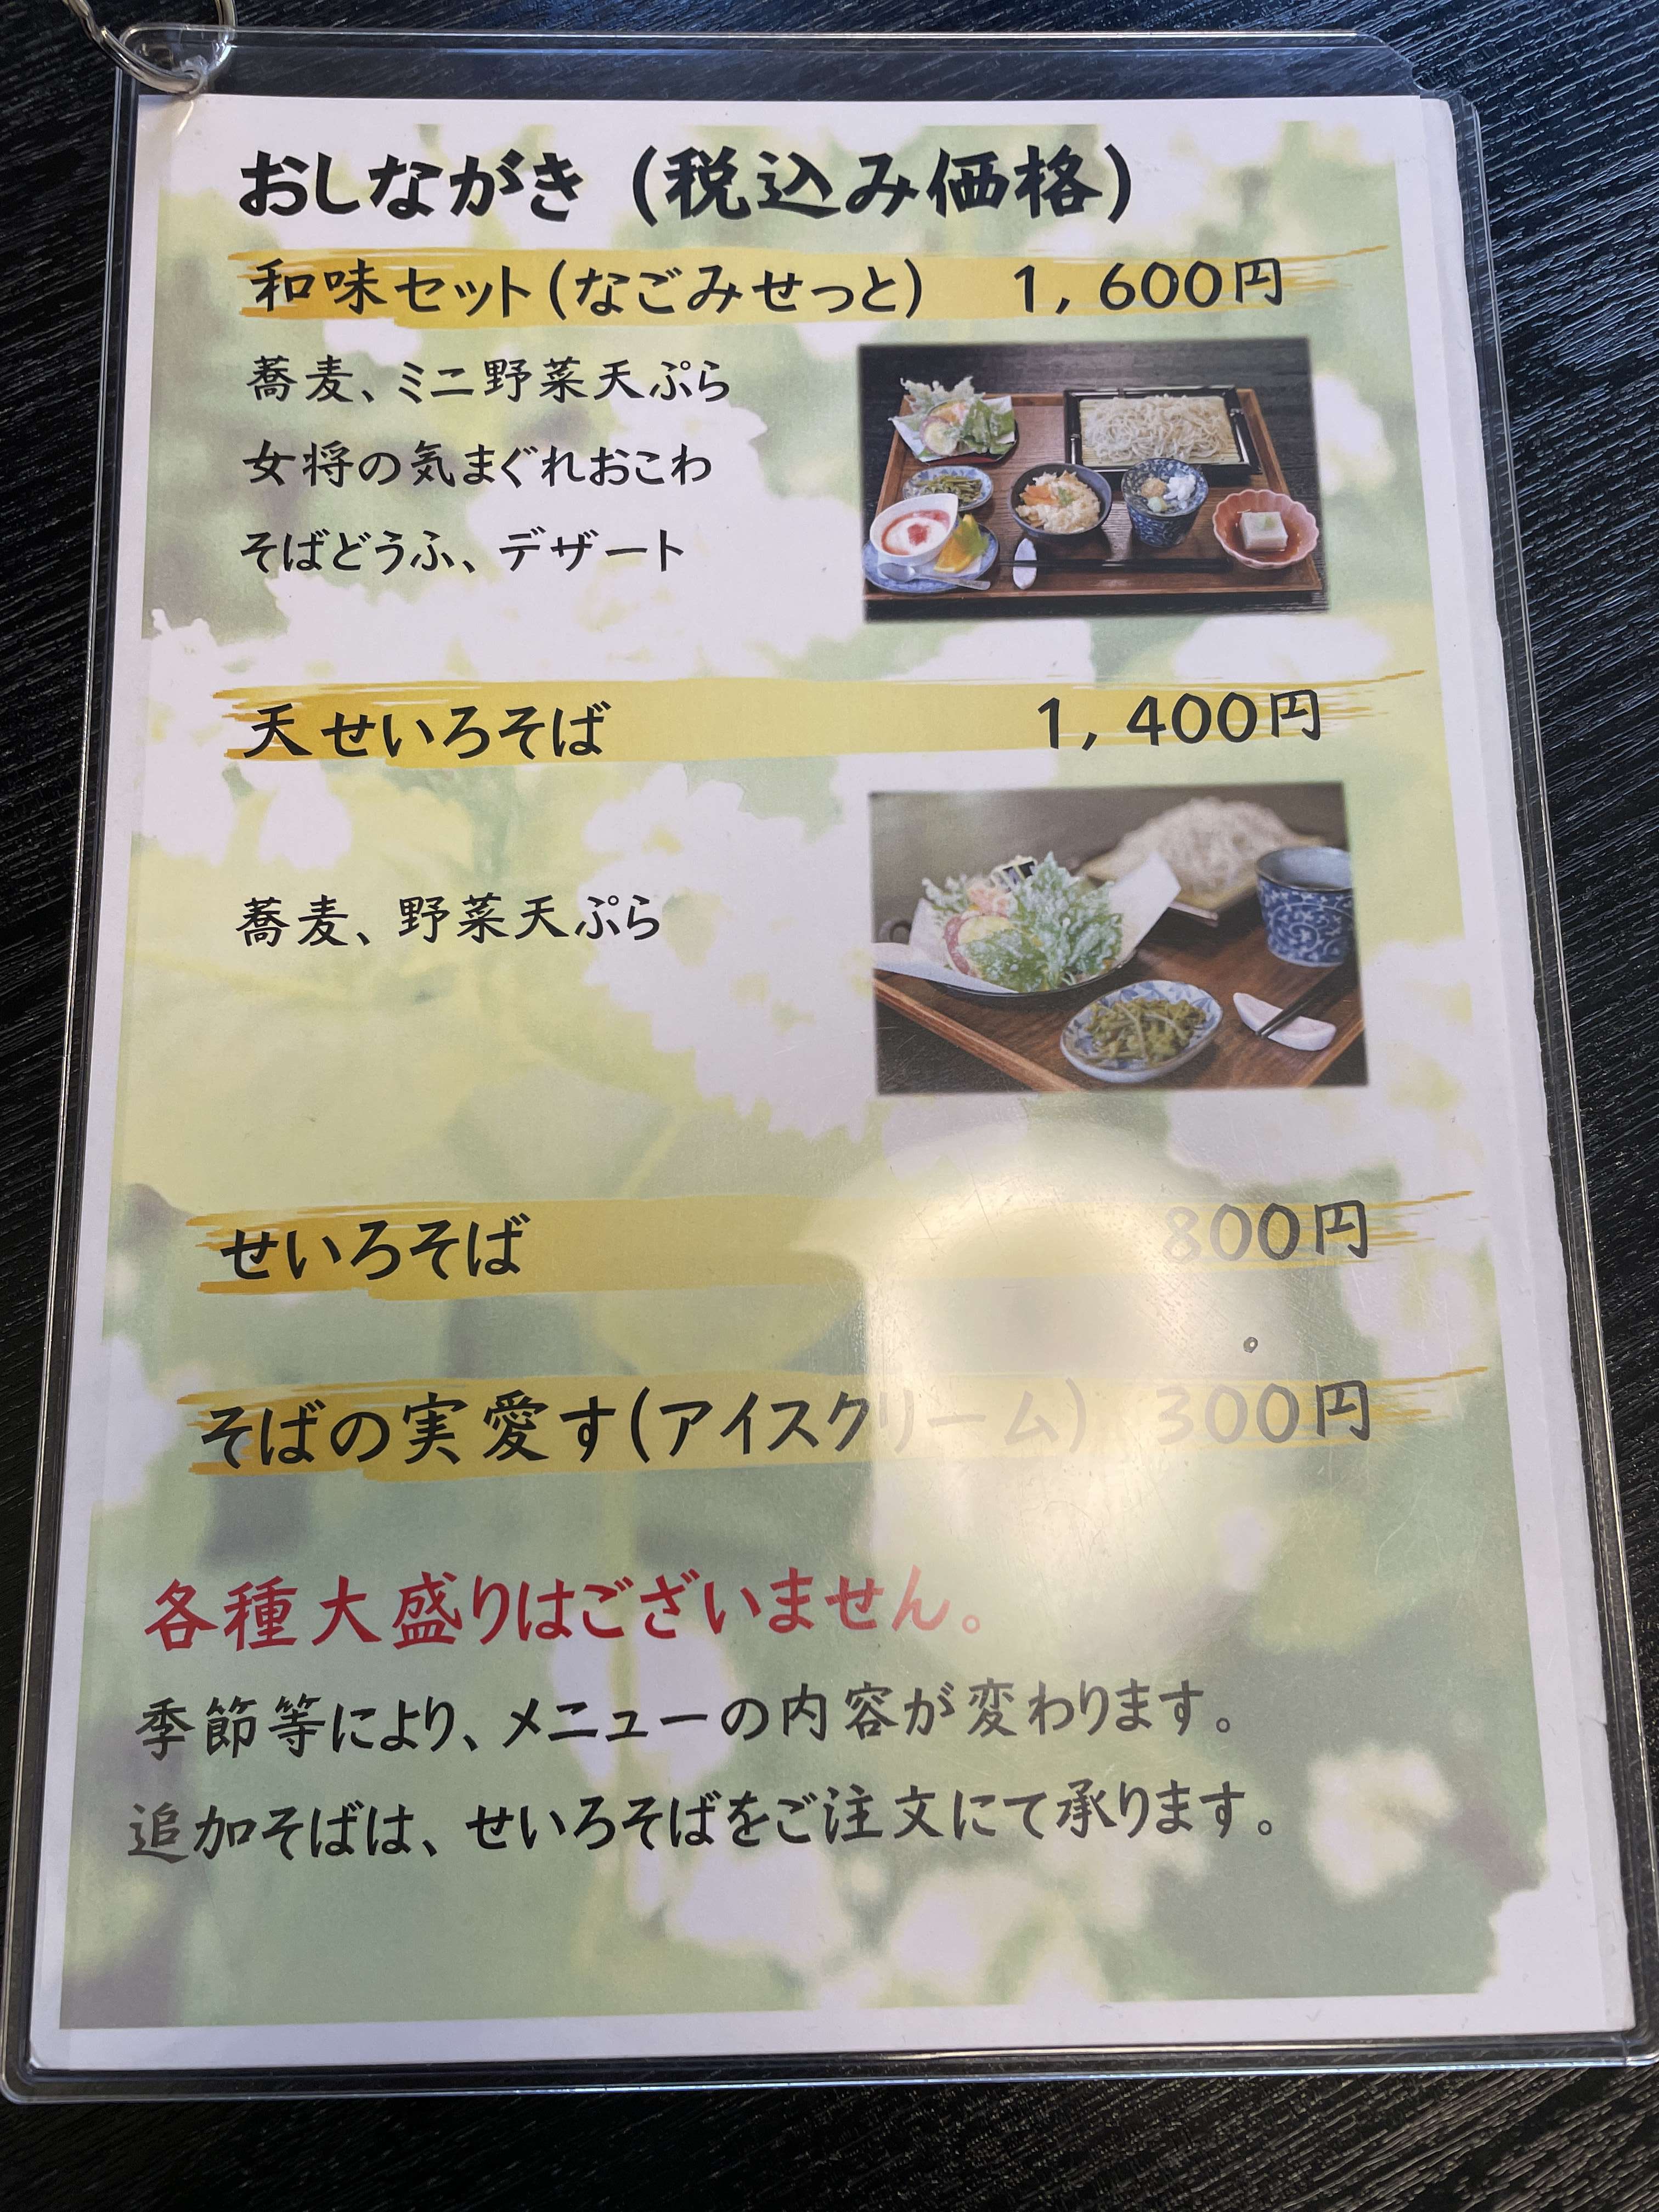 おしながき（税込み価格）
和味セット（なごみせっと） 1，600円
蕎麦、ミニ野菜天ぷら
女将の気まぐれおこわ
そばどうふ、デザート
天せいろそば 1，400円
蕎麦、野菜天ぷら
せいろそば 800円
そばの実愛す（アイスクリーム） 300円
各種大盛りはございません。
季節等により、メニューの内容が変わります。
追加そばは、せいろそばをご注文にて承ります。